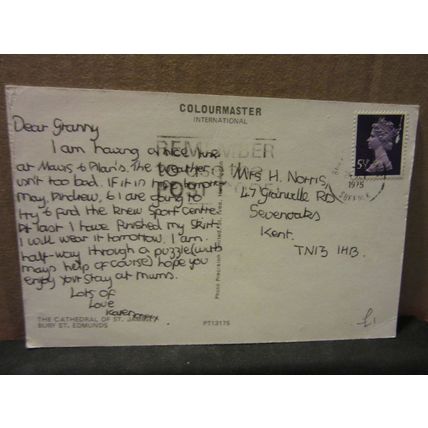 COLOURMASTER
INTERNATIONAL
Dear Granny
I am having a nice time
at Mavis & Alan's. The weather
isn't too bad. If it is
May, Andrew, & I are going to
try & find the knew Sport Centre.
At last I have finished my skirt
I will wear it tomorrow. I am
half way through a puzzle (with
mays help of course) hope you
enjoy your stay at mums.
Lots of
Love
Karen xxxx
THE CATHEDRAL OF ST. JAMES
BURY ST. EDMUNDS
PT13175
Photo Precision Limited
REMEMBER
to use the
POST
5½
1975
Mrs H. Norris,
47 Granville RD
Sevenoaks
Kent.
TN13 1HB.
£1